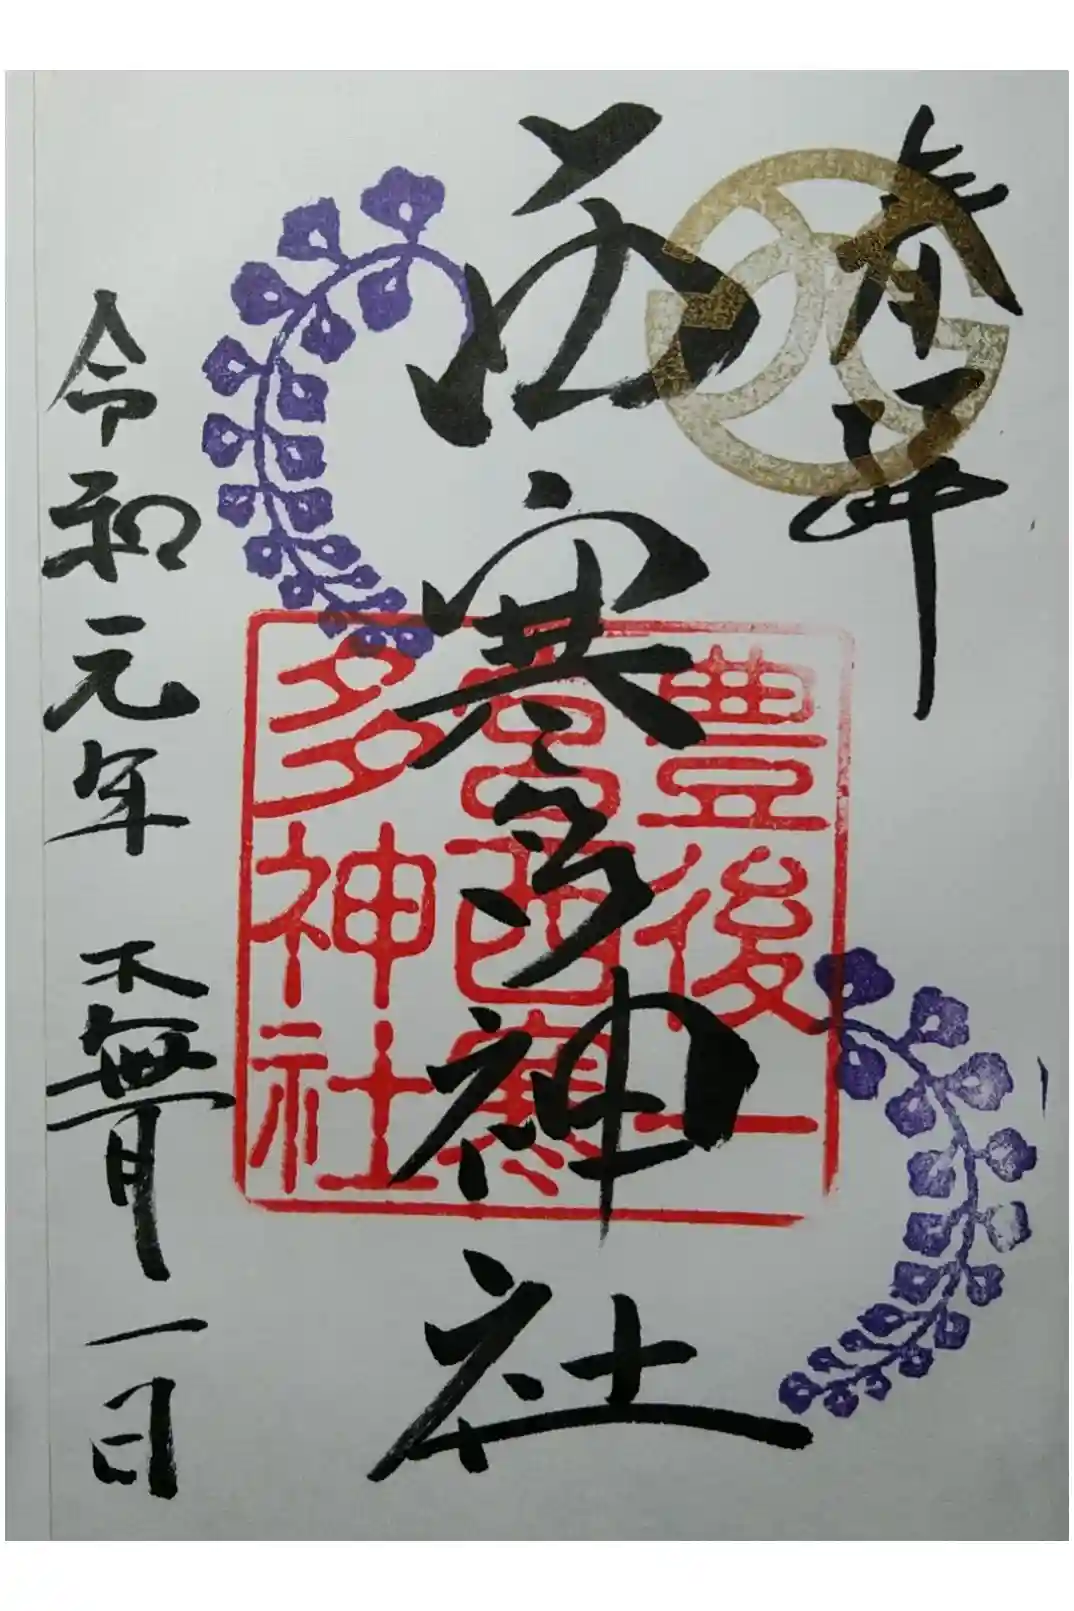 奉拝
西寒多神社
豊後一
宮西寒
多神社
令和元年 水無月一日